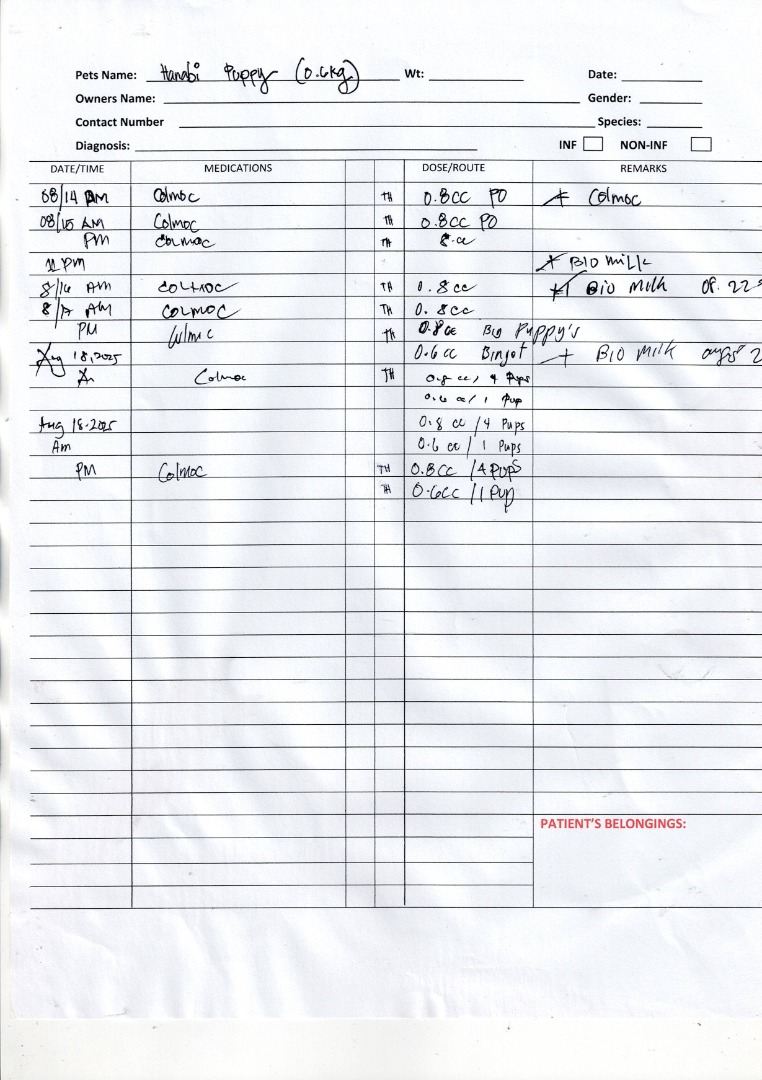 Pets Name: Hanabi Puppy (0.6kg) Wt: Date:
Owners Name: Gender:
Contact Number Species:
Diagnosis: INF NON-INF
DATE/TIME MEDICATIONS DOSE/ROUTE REMARKS
08/14 AM Colmoc TH 0.8cc PO + Colmoc
08/15 AM Colmoc TH 0.8cc PO
PM Colmoc TH
11 PM + BIO Milk
8/16 AM COLMOC TH 0.8cc +1 Bio Milk 08.22
8/17 AM COLMOC TH 0.8cc
PM Colmoc TH 0.8cc Big Puppy's
Aug 18, 2025 0.6 cc + BIO Milk
Colmoc TH 0.8 cc/ 4 Pups
0.6 cc/ 1 Pup
Aug 18-2025 0.8 cc /4 Pups
Am 0.6 cc/ 1 Pups
PM Colmoc TH 0.8cc /4 Pups
TH 0.6cc /1 Pup
PATIENT'S BELONGINGS: